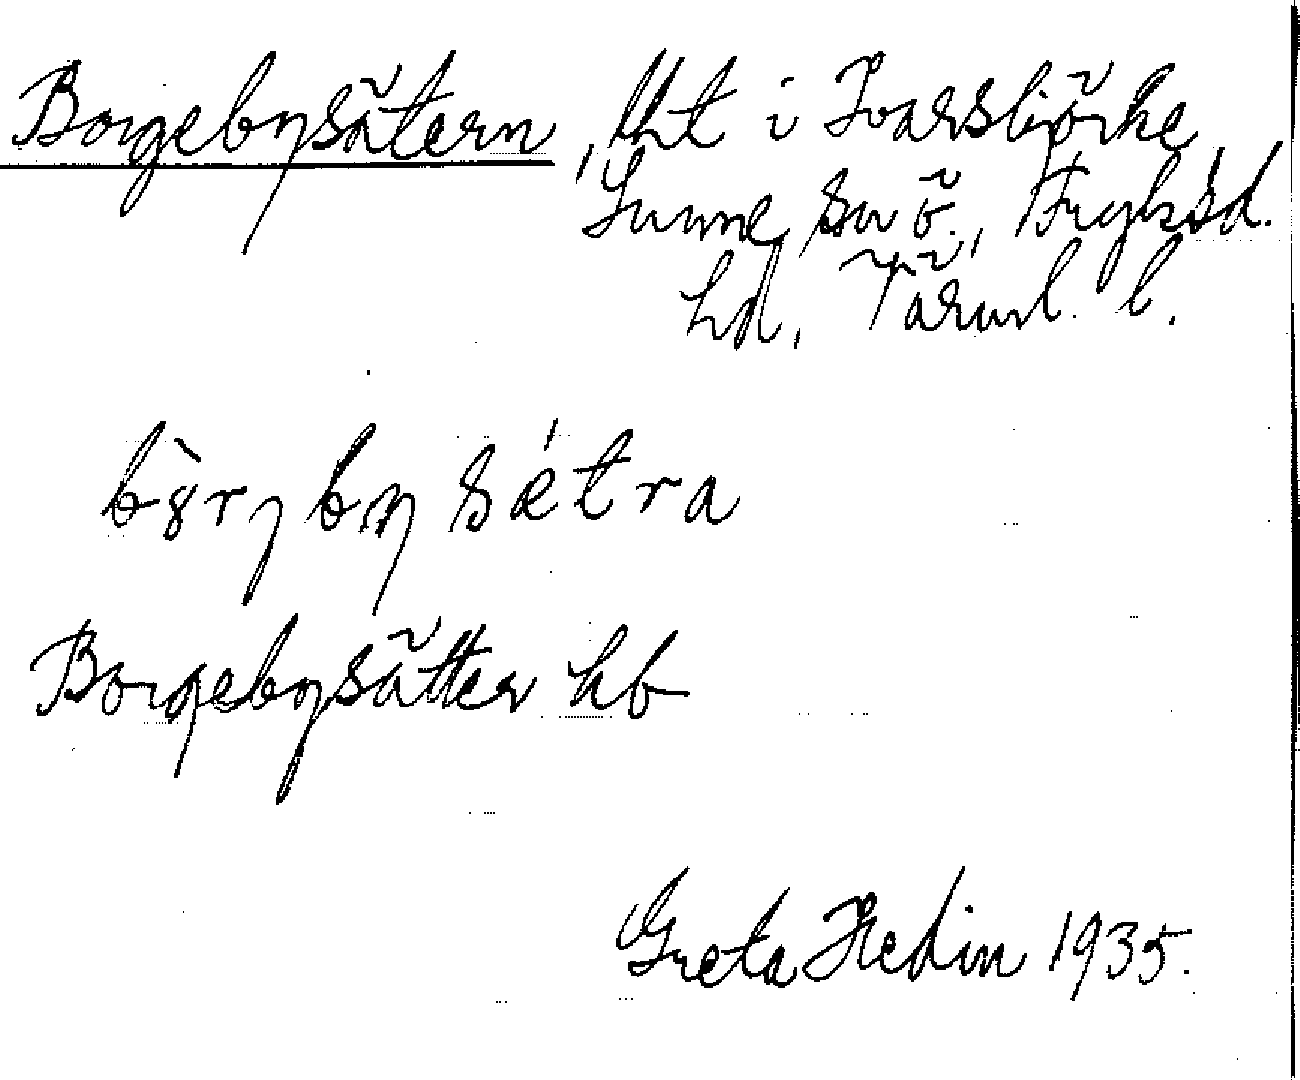 Borgebysätern, lht i Ivarsbjörke,
Sunne sn ö., Fryksd.
hd, Värml. l.
bòrybysétra
Borgebysätter hb
Greta Hedin 1935.